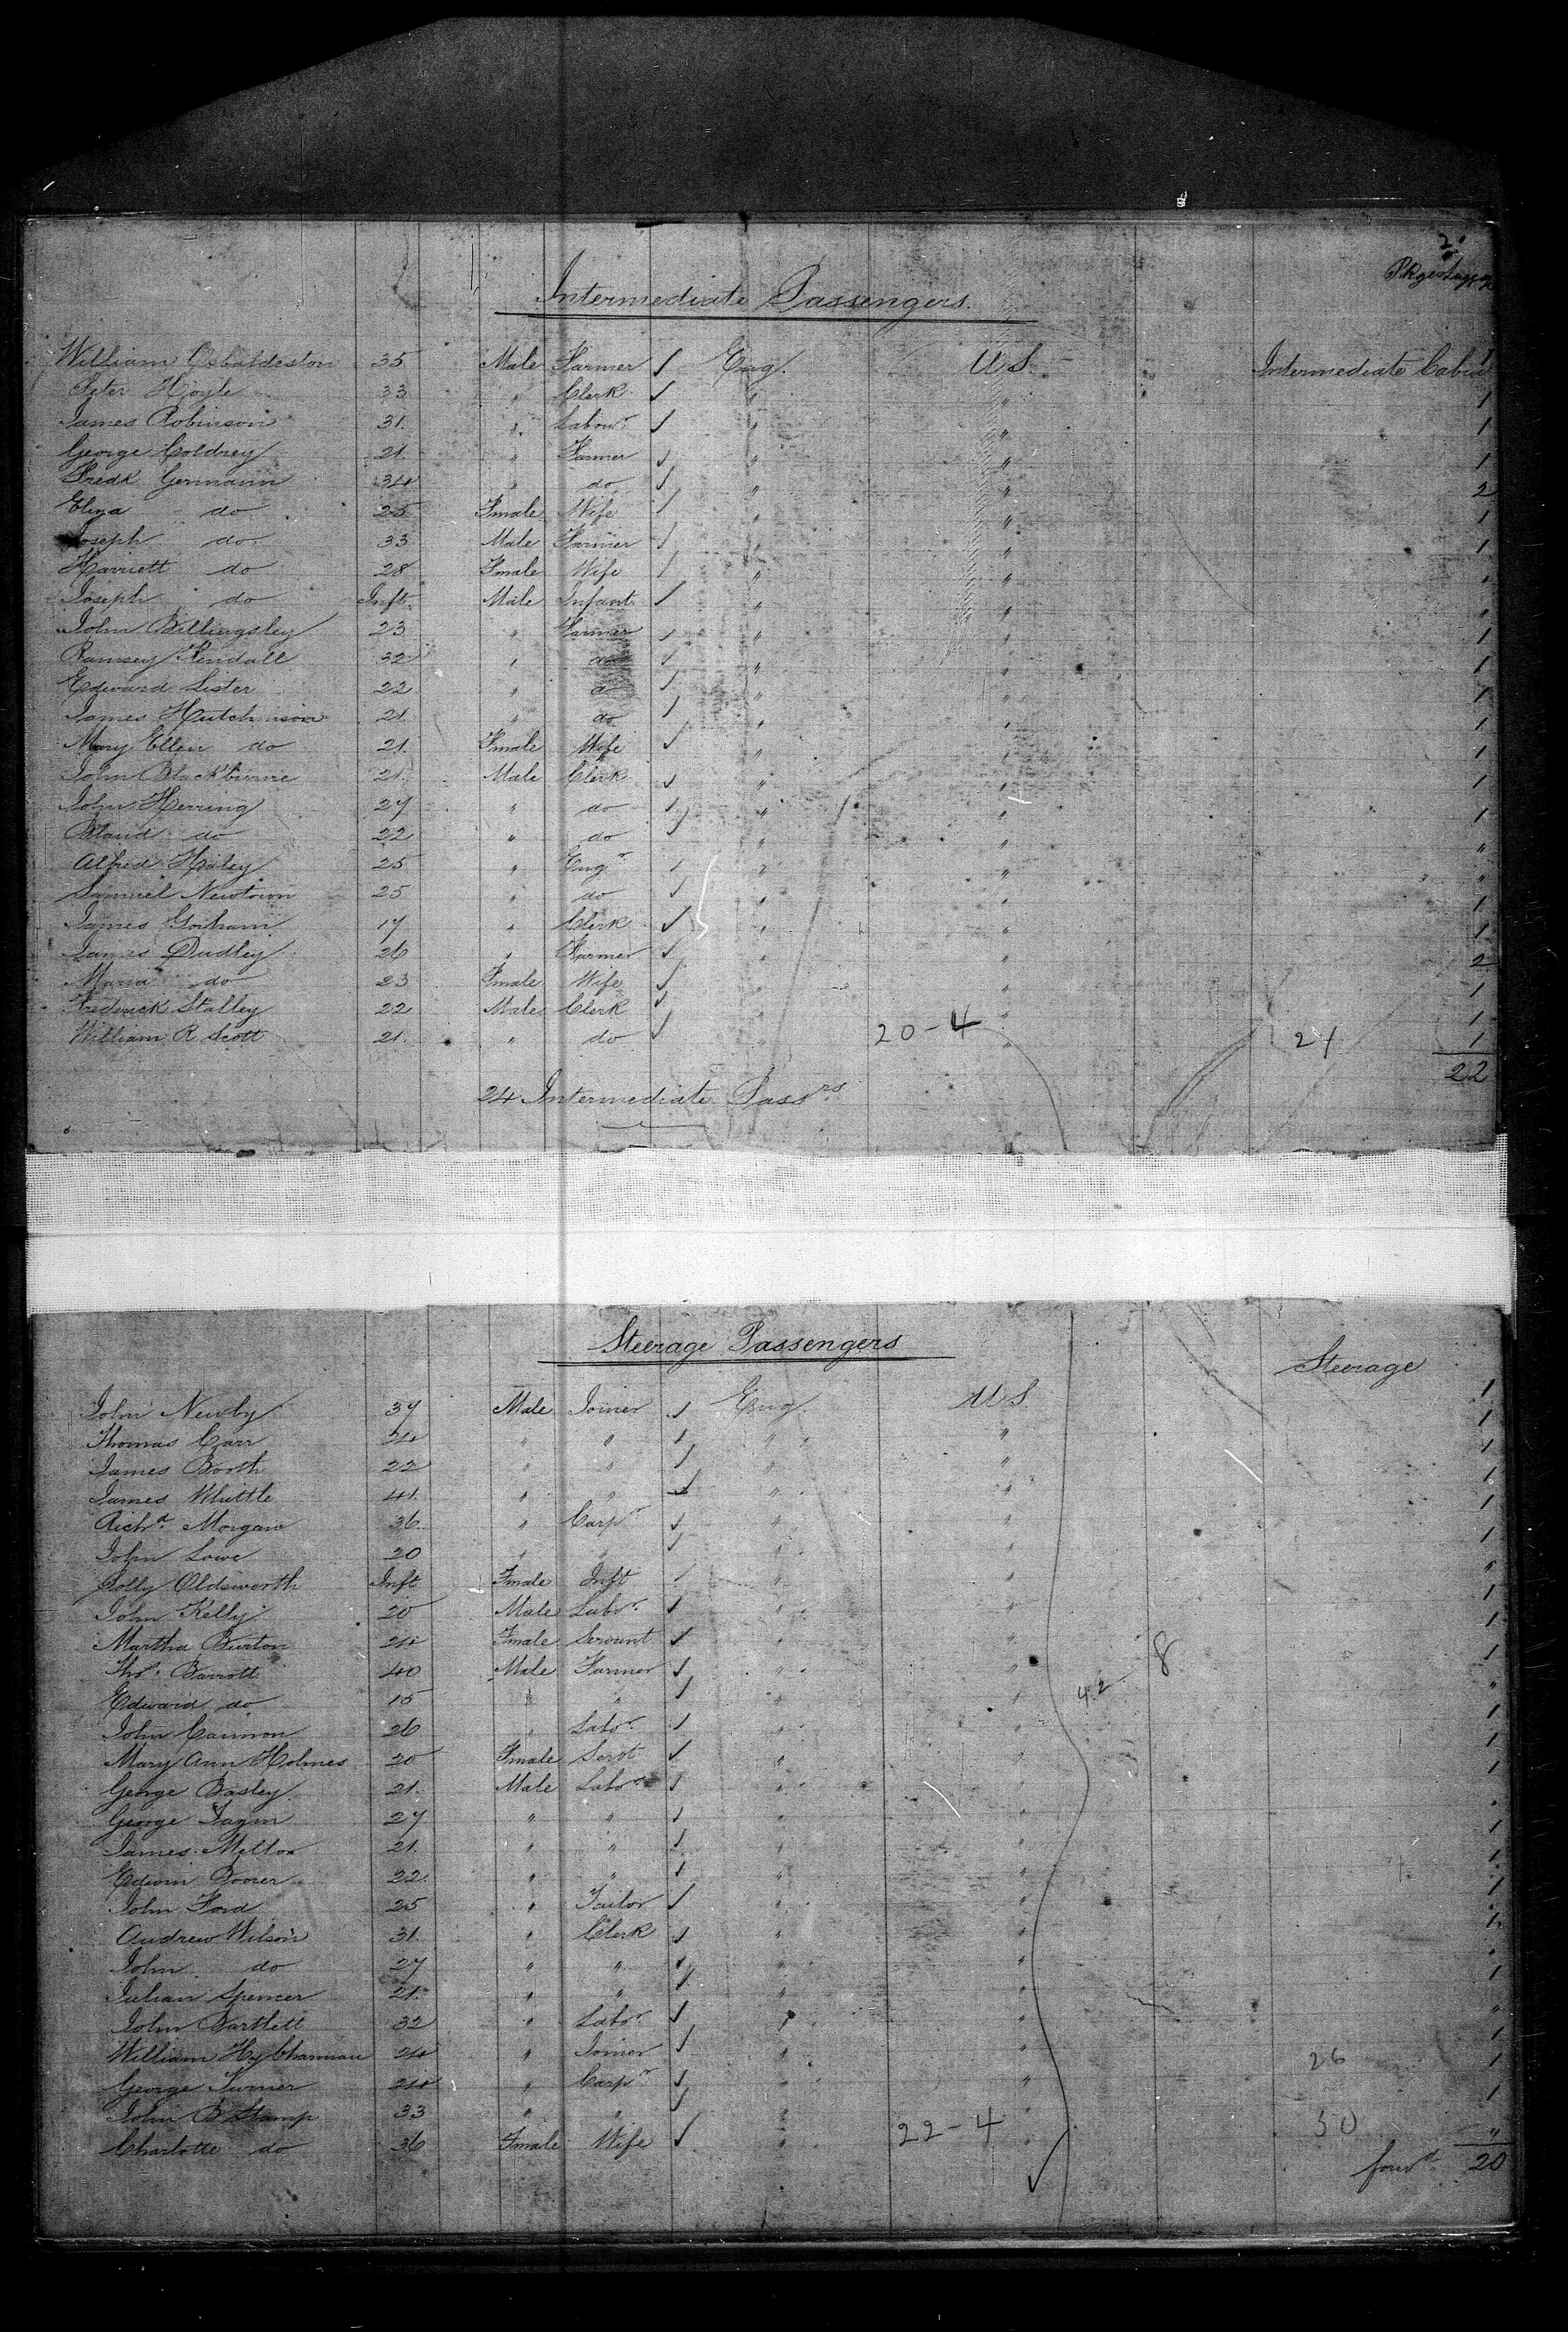 2
Intermediate Passengers.
William Osbaldeston 35 Male Farmer Eng. U S. Intermediate Cabin 1
Peter Hoyle 33 " Clerk " " 1
James Robinson 31. " Labour " " 1
George Coldrey 21. " Farmer " " 1
Fredk Germann 34 " do " " 2
Eliza do 25 Fmale Wife " " 1
Joseph do. 33 Male Farmer " " 1
Harriett do 28 Fmale Wife " " "
Joseph do Inft. Male Infant " " "
John Billingsley 23 " Farmer " " 1
Ramsey Kendall 32 " do " " 1
Edward Lister 22 " do " " 1
James Hutchinson 21. " do " " 1
Mary Ellen do 21. Fmale Wife " " 1
John Blackburne 21. Male Clerk " " 1
John Herring 27 " do " " 1
Bland do 22 " do " " "
Alfred Haley 25 " Engr " " "
Samuel Newtown 25 " do " " 1
James Gorham 17 " Clerk " " 1
James Dudley 26 " Farmer " " 2
Maria do 23 Fmale Wife " " 1
Frederick Stalley 22 Male Clerk " " 1
William R Scott 21. " do " 20-4 " 24 1
22
24 Intermediate Passrs
Steerage Passengers
Steerage
John Newby 37 Male Joiner Eng U S. 1
Thomas Carr 24 " " " " 1
James Booth 22 " " " " 1
James Whittle 41. " " " " 1
Richd. Morgan 36 " Carpr " " 1
John Lowe 20 " " " " 1
Polly Oldsworth Inft Fmale Inft " " "
John Kelly 20 Male Labr. " " 1
Martha Burton 24 Fmale Servant " " 1
Thos. Barrott 40 Male Farmer " " 8 1
Edward do 15 " " " " 42 "
John Cannon 26 " Labr. " " 1
Mary Ann Holmes 20 Fmale Servt " " 1
George Basley 21. Male Labr " " 1
George 27 " " " " "
James Melton 21. " " " " 1
Edwin 22. " " " " 1
John Ford 25 " Tailor " " 1
Andrew Wilson 31. " Clerk " " 1
John do 27 " " " " "
Julian Spencer 21. " " " " 1
John Bartlett 32 " Labr. " " "
William Hy Charman 24 " Joiner " " 1
George Turner 24 " Carpr " " 26 1
John B Stamp 33 " " " " 1
Charlotte do 36 Fmale Wife " 22-4 " 50 "
forwd 20